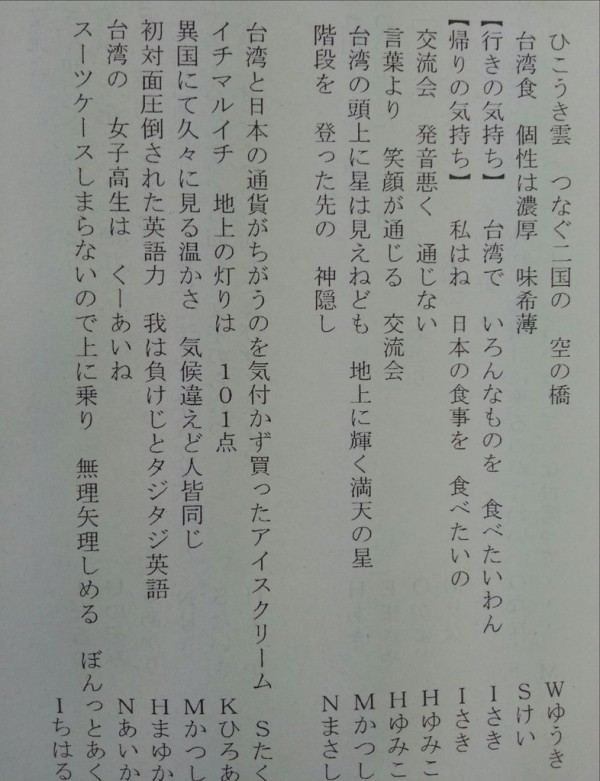 ひこうき雲　つなぐ二国の　空の橋　Wゆうき
台湾食　個性は濃厚　味希薄　Sけい
【行きの気持ち】　台湾で　いろんなものを　食べたいわん　Iさき
【帰りの気持ち】　私はね　日本の食事を　食べたいの　Iさき
交流会　発音悪く　通じない　Hゆみこ
言葉より　笑顔が通じる　交流会　Hゆみこ
台湾の頭上に星は見えねども　地上に輝く満天の星　Mかつし
階段を　登った先の　神隠し　Nまさし
台湾と日本の通貨がちがうのを気付かず買ったアイスクリーム　Sたく
イチマルイチ　地上の灯りは　１０１点　Kひろあ
異国にて久々に見る温かさ　気候違えど人皆同じ　Mかつし
初対面圧倒された英語力　我は負けじとタジタジ英語　Hまゆか
台湾の　女子高生は　くーあいね　Nあいか
スーツケースしまらないので上に乗り　無理矢理しめる　ぼんっとあく　Iちはる